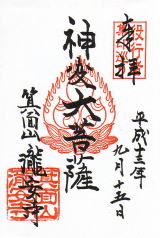 奉拝
神変大菩薩
箕面山 瀧安寺
平成十三年
九月十五日